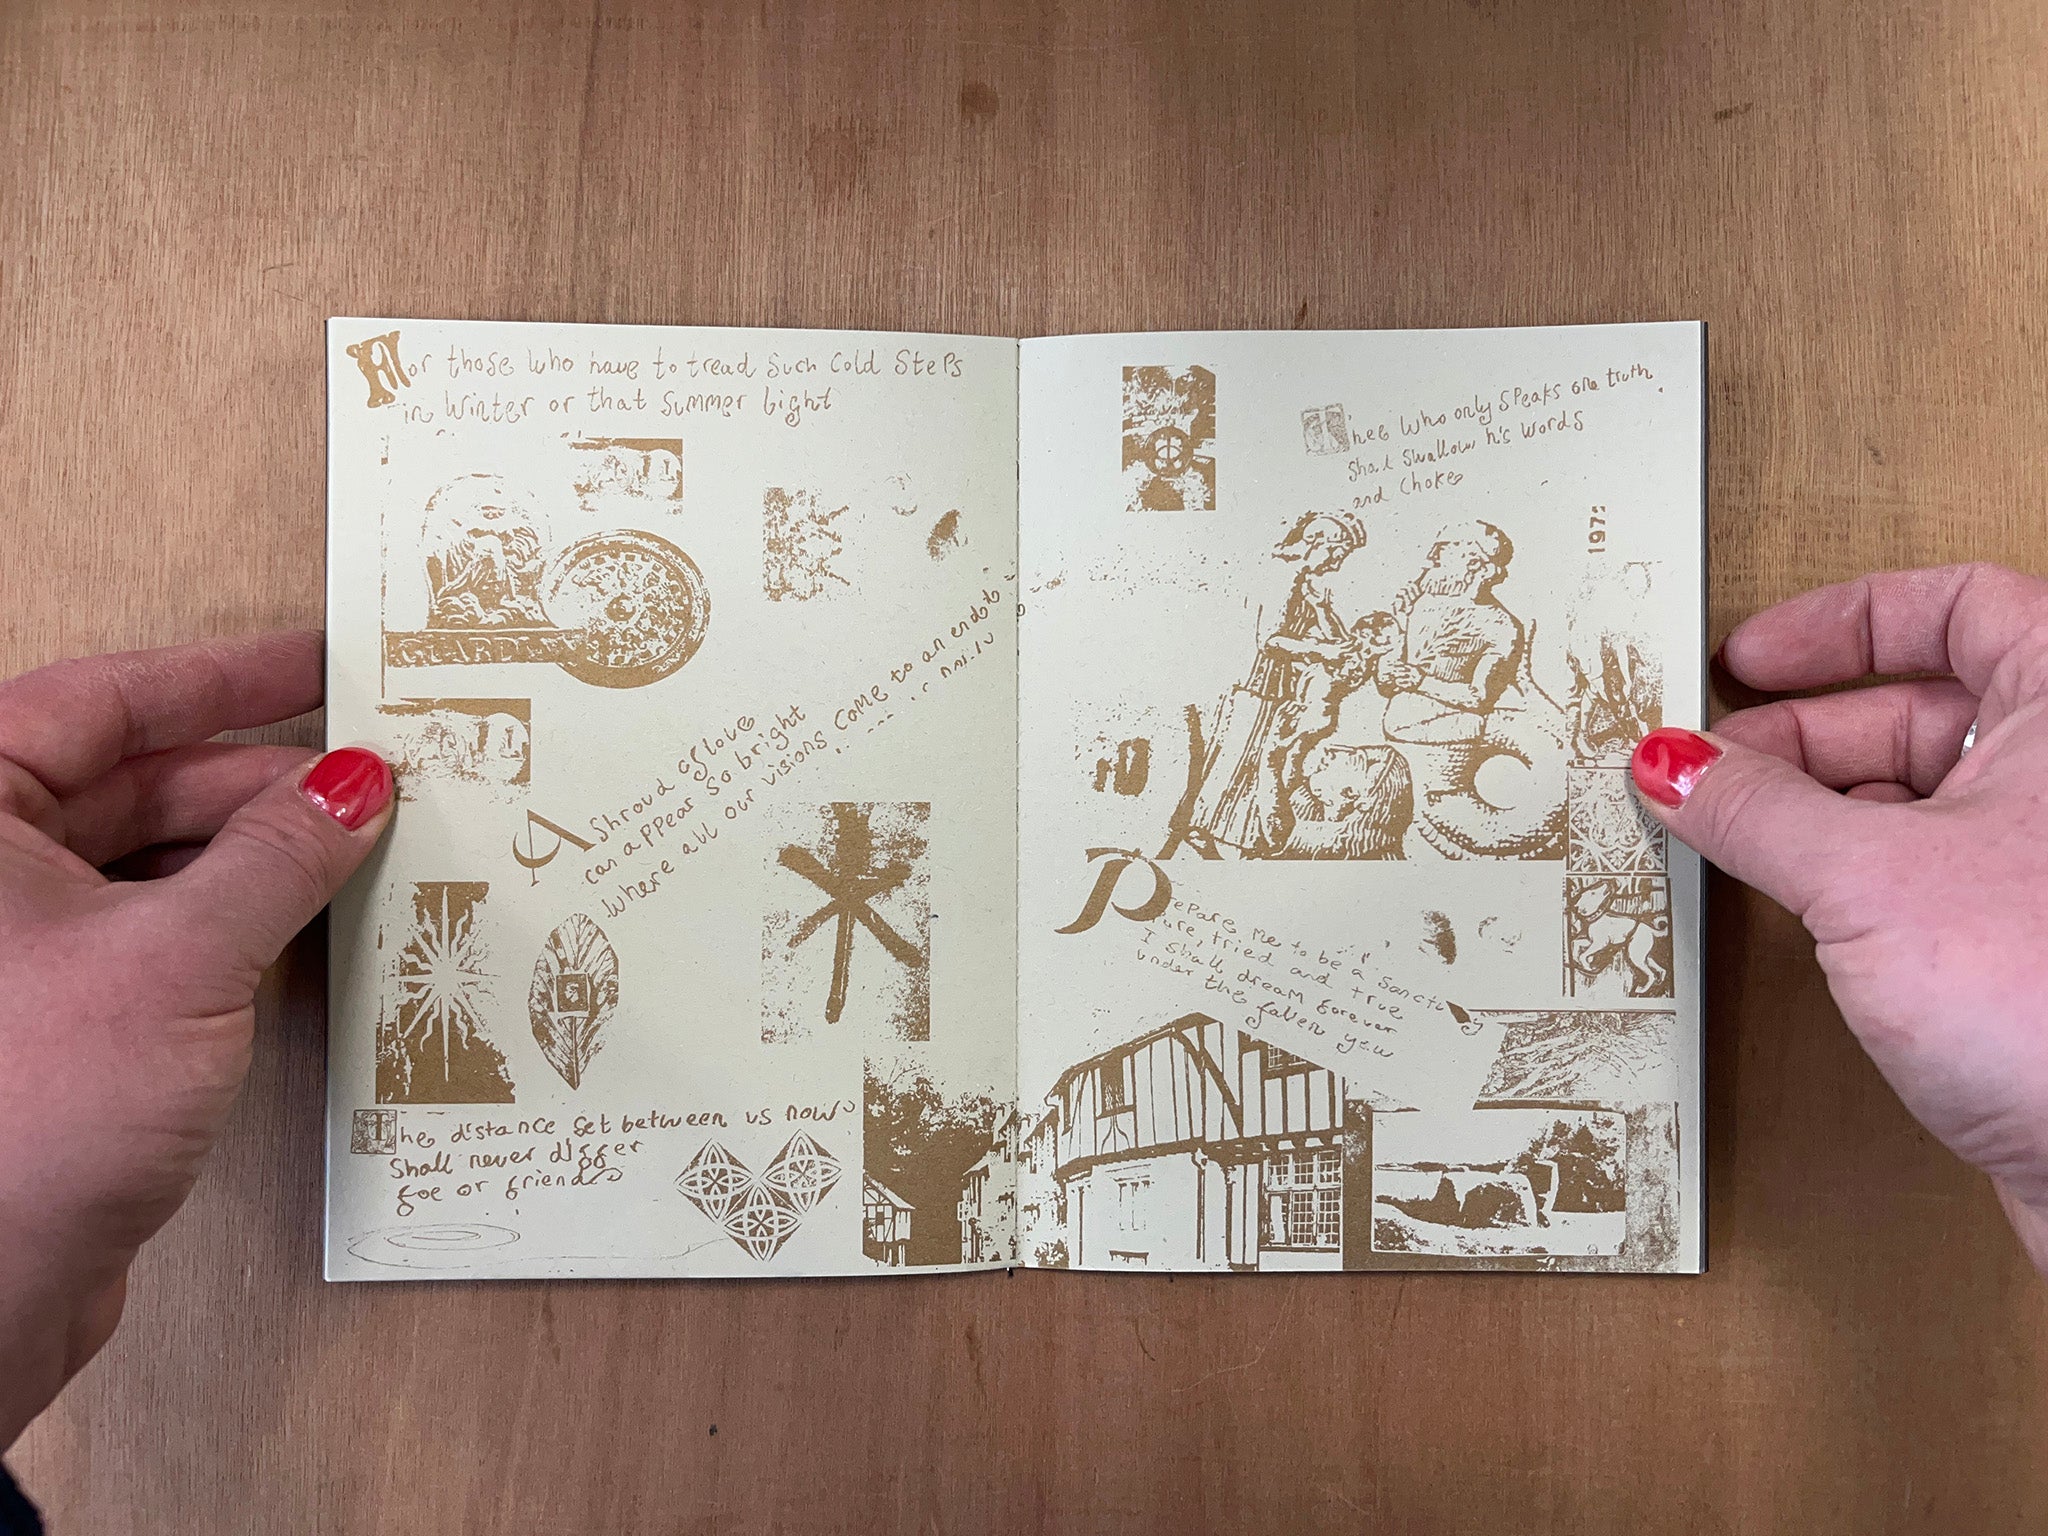 For those who have to tread such cold steps
in winter or that summer light
GUARDI
A shroud of love
can appear so bright
where all our visions come to an end
The distance set between us now
shall never differ
foe or friend
Thee who only speaks one truth
shal swallow his words
and choke
197
Prepare me to be a sanctury
Pure, tried and true
I shall dream forever
under
the fallen yew